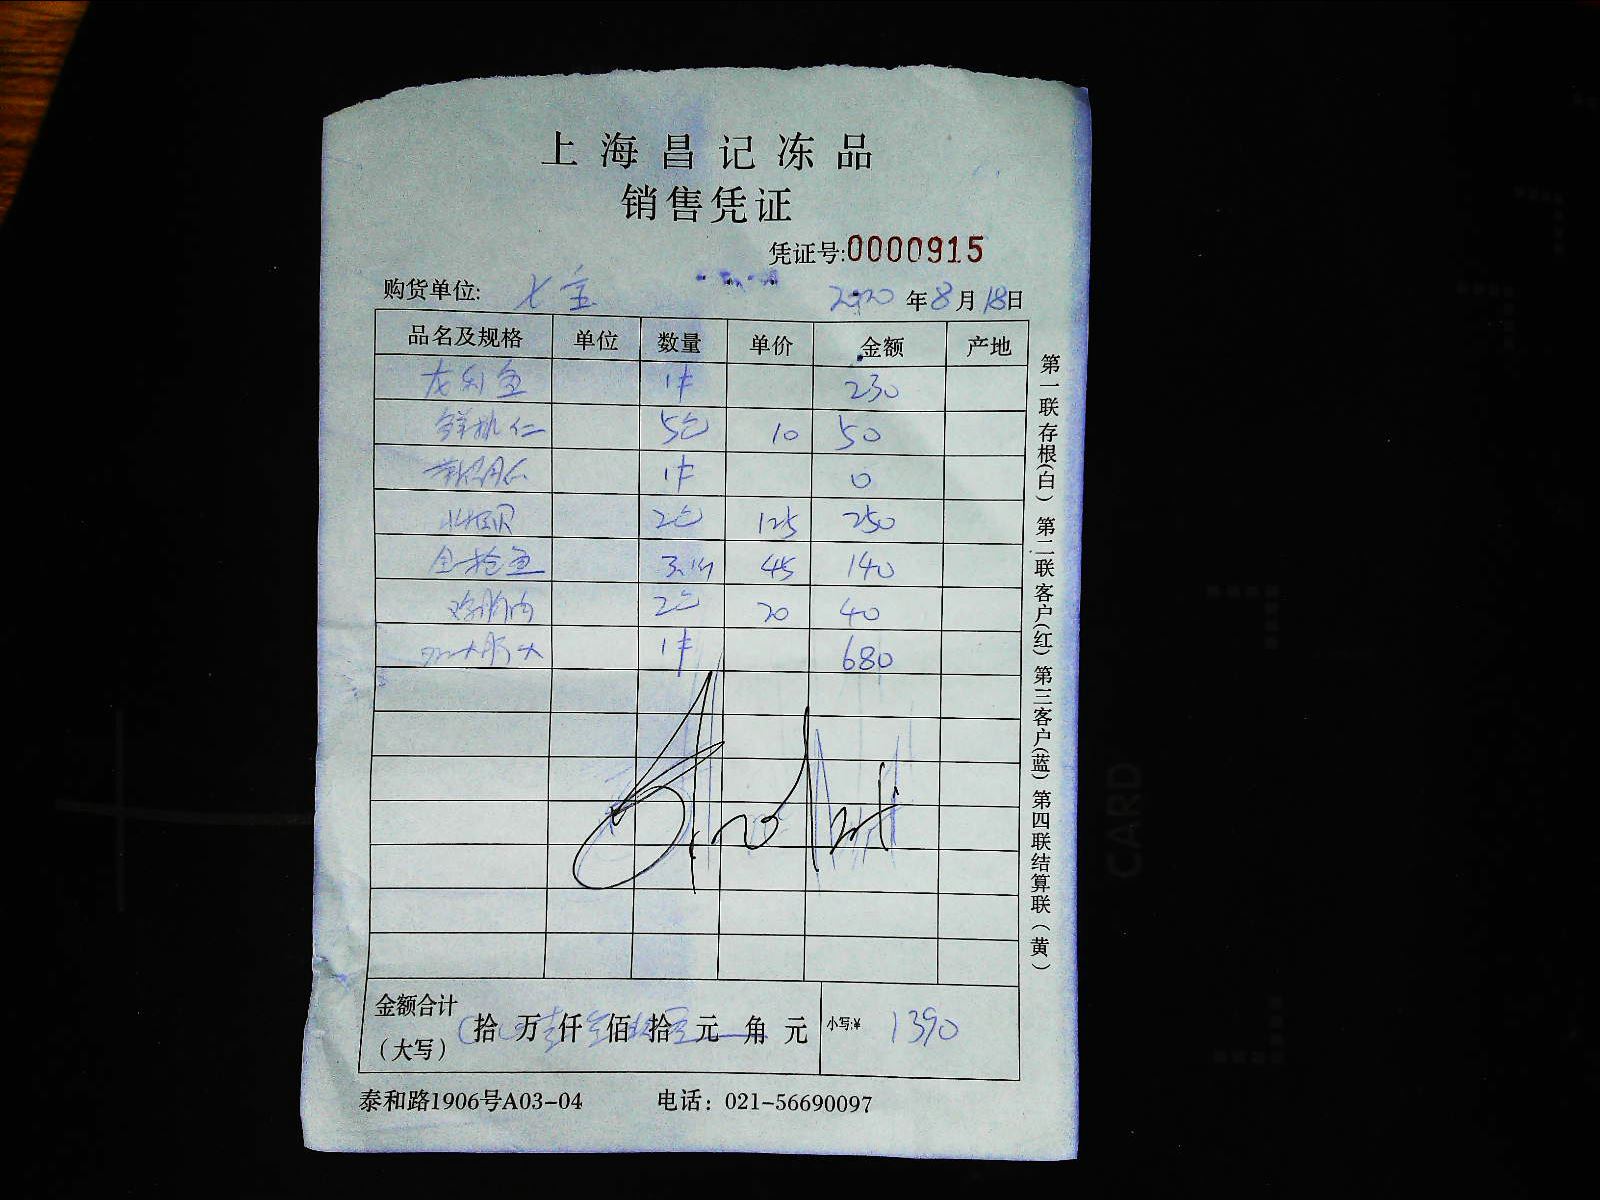 上海昌记冻品
销售凭证
凭证号:0000915
购货单位: 七宝 2020年8月18日
品名及规格 单位 数量 单价 金额 产地
龙利鱼 1件 230
5包 10 50
1件 0
北极贝 2包 125 250
金枪鱼 45 140
鸡胸肉 2包 20 40
1件 680
金额合计
(大写) 拾 万 仟 佰 拾 元 角 元 小写:¥ 1390
泰和路1906号A03-04 电话：021-56690097
第一联存根(白) 第二联客户(红) 第三客户(蓝) 第四联结算联(黄)
CARD